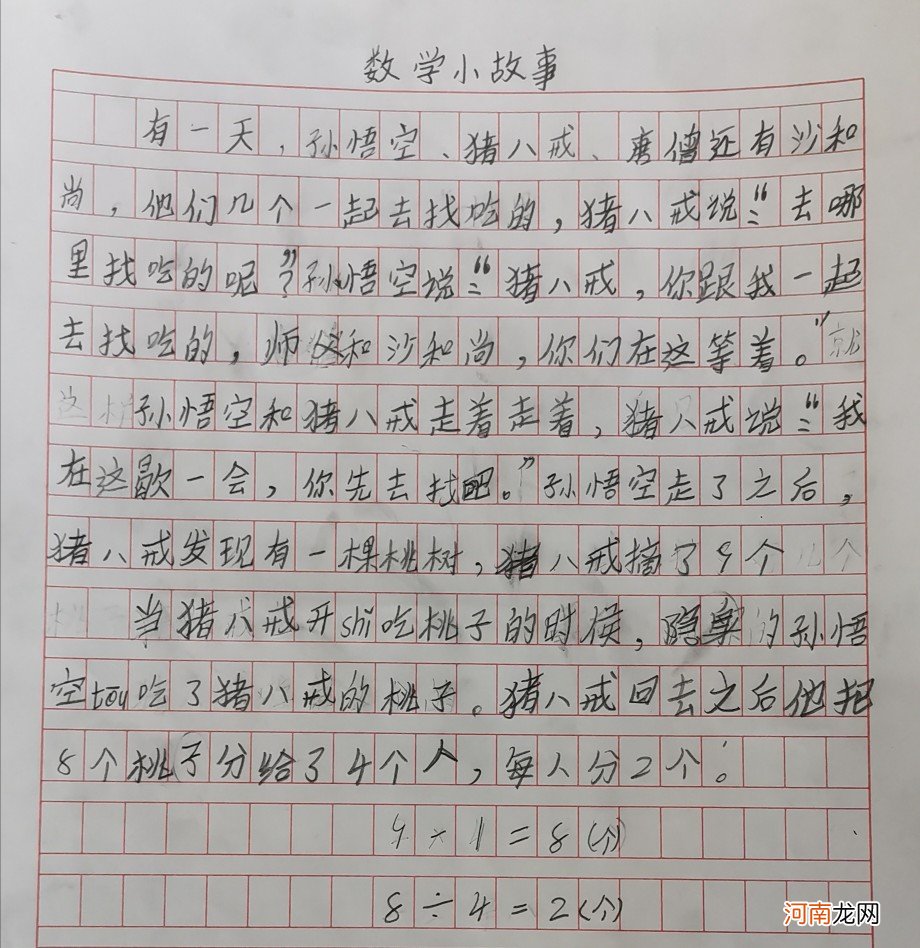 数学小故事
有一天，孙悟空、猪八戒、唐僧还有沙和
尚，他们几个一起去找吃的，猪八戒说：“去哪
里找吃的呢？”孙悟空说：“猪八戒，你跟我一起
去找吃的，师父和沙和尚，你们在这等着。”就
这样孙悟空和猪八戒走着走着，猪八戒说：“我
在这歇一会，你先去找吧。”孙悟空走了之后，
猪八戒发现有一棵桃树，猪八戒摘了9个
当猪八戒开shǐ吃桃子的时候，隐身的孙悟
空tōu吃了猪八戒的桃子。猪八戒回去之后他把
8个桃子分给了4个人，每人分2个。
9 - 1 = 8 (个)
8 ÷ 4 = 2 (个)
河南龙网